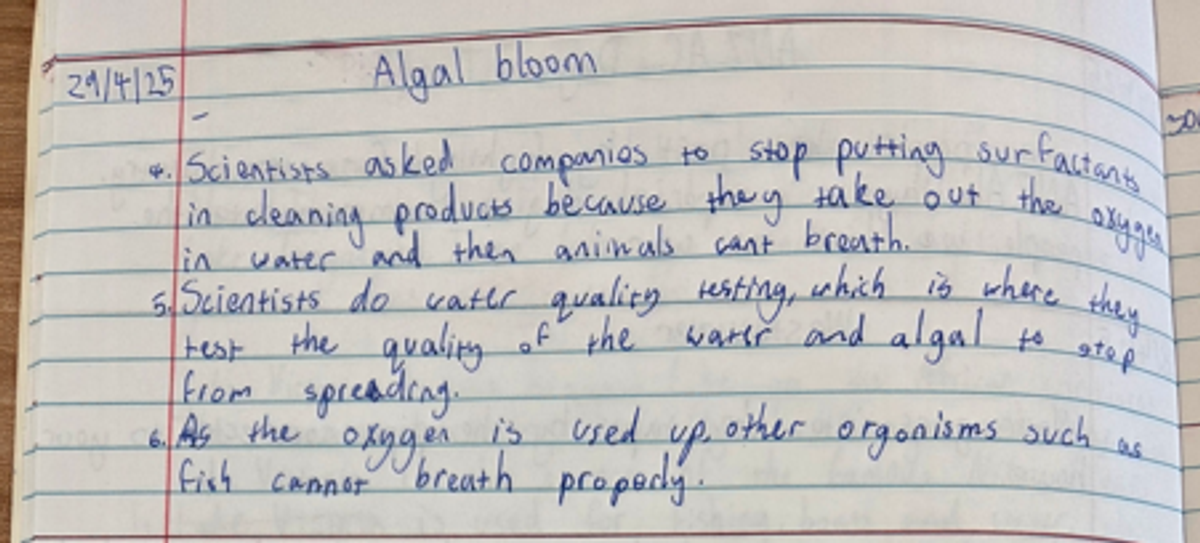 29/4/25 Algal bloom
4. Scientists asked companies to stop putting surfactants
in cleaning products because they take out the oxygen
in water and then animals cant breath.
5. Scientists do water quality testing, which is where they
test the quality of the water and algal to stop
from spreading.
6. As the oxygen is used up, other organisms such as
fish cannot breath properly.